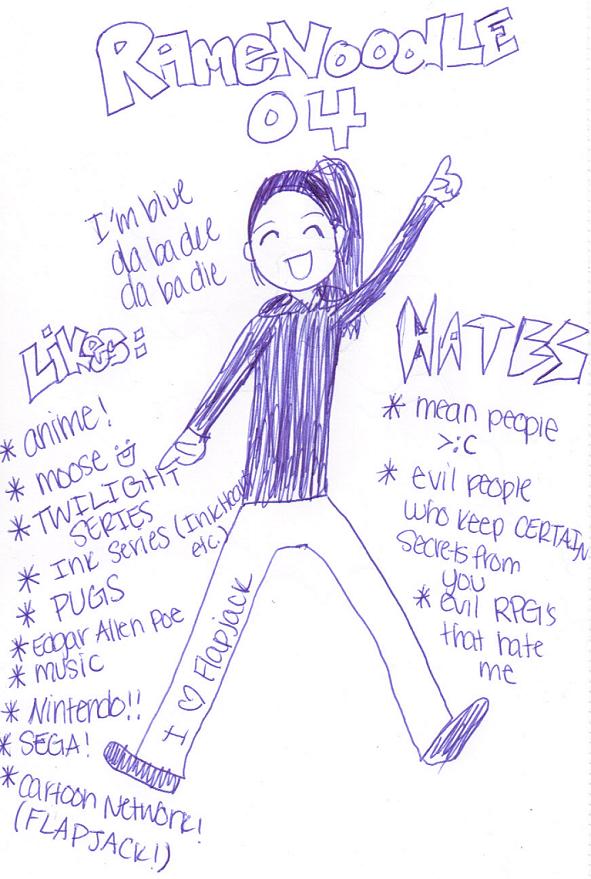 RAMENOODLE
04
I'm blue
da ba dee
da ba die
Likes:
* anime!
* moose
* TWILIGHT
SERIES
* Ink Series (Inkheart
etc.)
* PUGS
* Edgar Allen Poe
* music
* Nintendo!!
* SEGA!
* Cartoon Network!
(FLAPJACK!)
I ♡ Flapjack
HATES
* mean people
>:C
* evil people
who keep CERTAIN
secrets from
you
* evil RPG's
that hate
me